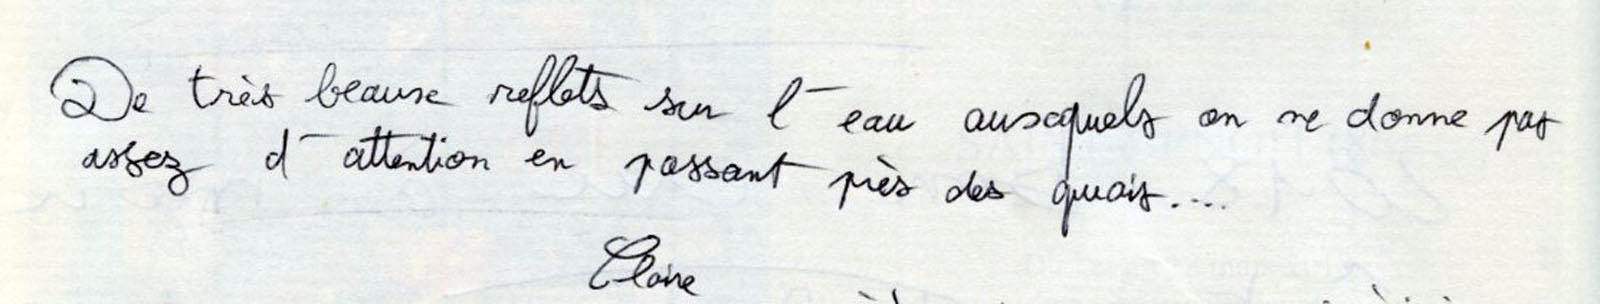 De très beaux reflets sur l'eau auxquels on ne donne pas
assez d'attention en passant près des quais....
Claire